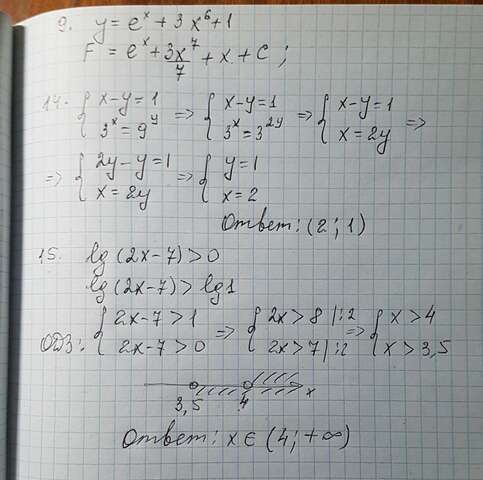 9. y = eˣ + 3x⁶ + 1
F = eˣ + 3x⁷/7 + x + C ;
14. { x-y=1 ; 3ˣ=9ʸ => { x-y=1 ; 3ˣ=3²ʸ => { x-y=1 ; x=2y =>
=> { 2y-y=1 ; x=2y => { y=1 ; x=2
Ответ: (2 ; 1)
15. lg (2x-7) > 0
lg (2x-7) > lg1
ОДЗ: { 2x-7 > 1 ; 2x-7 > 0 => { 2x > 8 |:2 ; 2x > 7 |:2 => { x > 4 ; x > 3,5
3,5 4 x
Ответ: x ∈ (4; +∞)